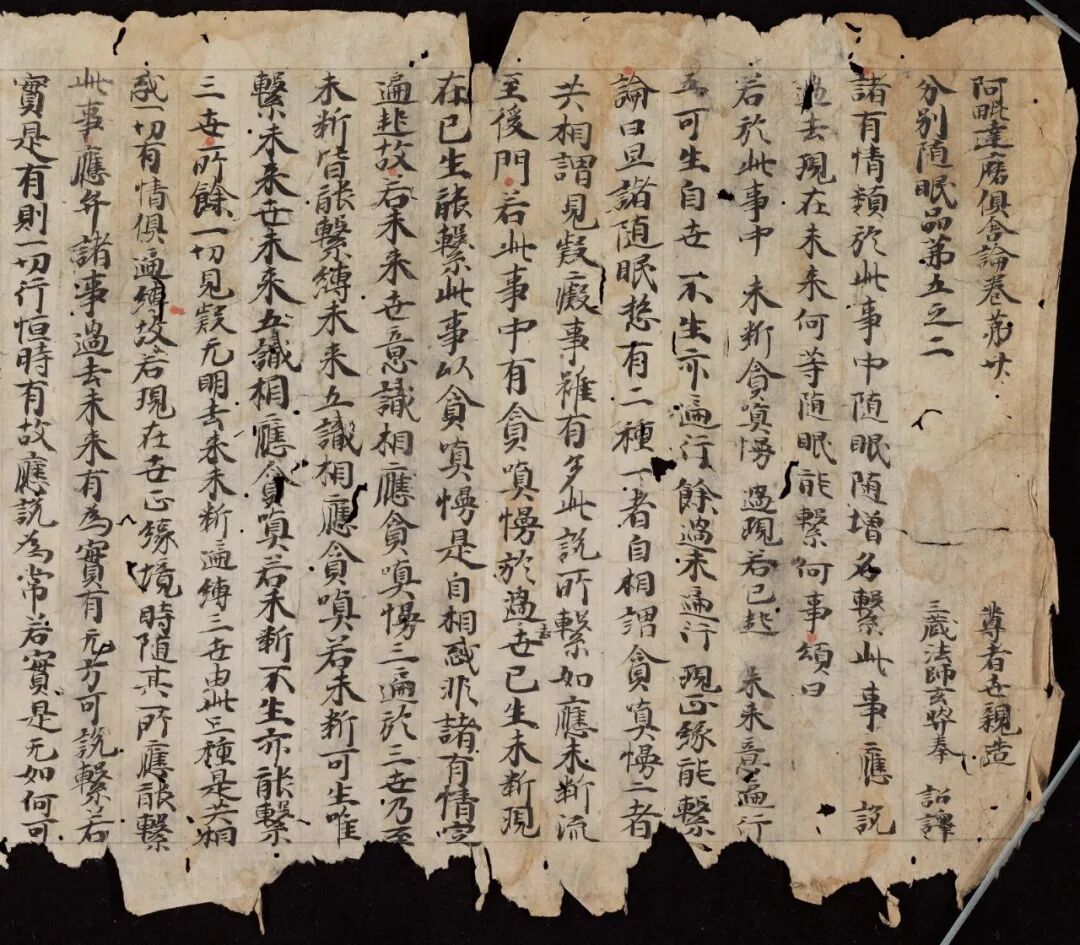 阿毗達磨俱舍論卷苐廿 尊者世親造
分別随眠品苐五之二 三藏法師玄奘奉 詔譯
諸有情類於此事中随眠随増名繫此事應說
過去現在未来何等随眠能繫何事頌曰
若於此事中 未断貪嗔慢 過現若已起 未来意遍行
五可生自世 不生亦遍行 餘過未遍行 現正緣能繫
論曰且諸随眠惣有二種一者自相謂貪嗔慢二者
共相謂見疑癡事雖有多此說所繫如應未断流
至後門若此事中有貪嗔慢於過世已生未断現
在已生能繫此事以貪嗔慢是自相惑非諸有情定
遍起故若未来世意識相應貪嗔慢三遍於三世乃至
未断皆能繫縛未来五識相應貪嗔若未断可生唯
繫未来世未来五識相應貪嗔若未断不生亦能繫
三世所餘一切見疑无明去来未断遍縛三世由此三種是共相
惑一切有情俱遍縛故若現在世正緣境時随其所應能繫
此事應弁諸事過去未来有為實有无方可說繫若
實是有則一切行恒時有故應說為常若實是无如何可